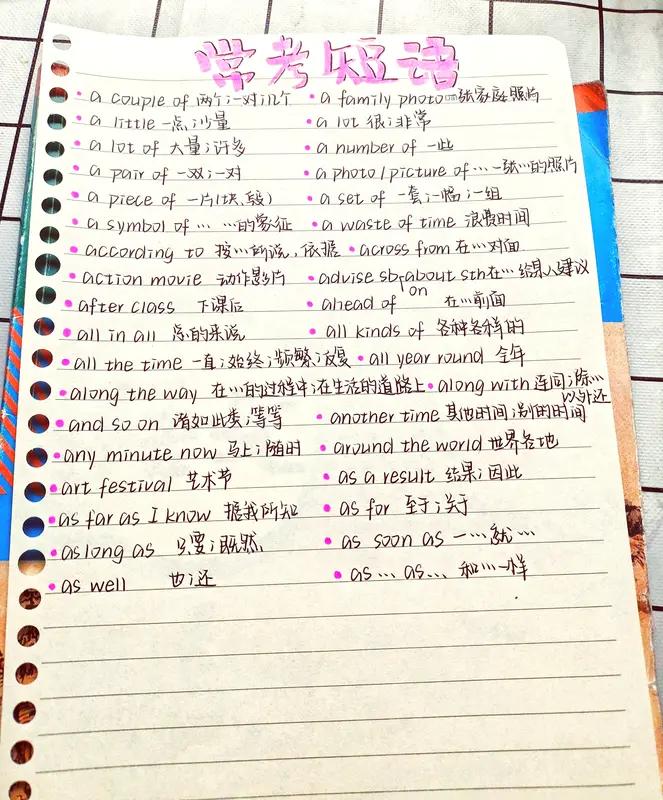 常考短语
a couple of 两个;一对;几个 a family photo 一张家庭照片
a little 一点;少量 a lot 很;非常
a lot of 大量;许多 a number of 一些
a pair of 一双;一对 a photo/picture of… 一张…的照片
a piece of 一片(块,段) a set of 一套;一幅;一组
a symbol of… …的象征 a waste of time 浪费时间
according to 按…所说,依据 across from 在…对面
action movie 动作影片 advise sb about sth 在… 给某人建议
on
after class 下课后 ahead of 在…前面
all in all 总的来说 all kinds of 各种各样的
all the time 一直;始终;频繁;反复 all year round 全年
along the way 在…的过程中;在生活的道路上 along with 连同;除…
以外还
and so on 诸如此类;等等 another time 其他时间;别的时间
any minute now 马上;随时 around the world 世界各地
art festival 艺术节 as a result 结果;因此
as far as I know 据我所知 as for 至于;关于
as long as 只要;既然 as soon as 一…就…
as well 也;还 as… as… 和…一样